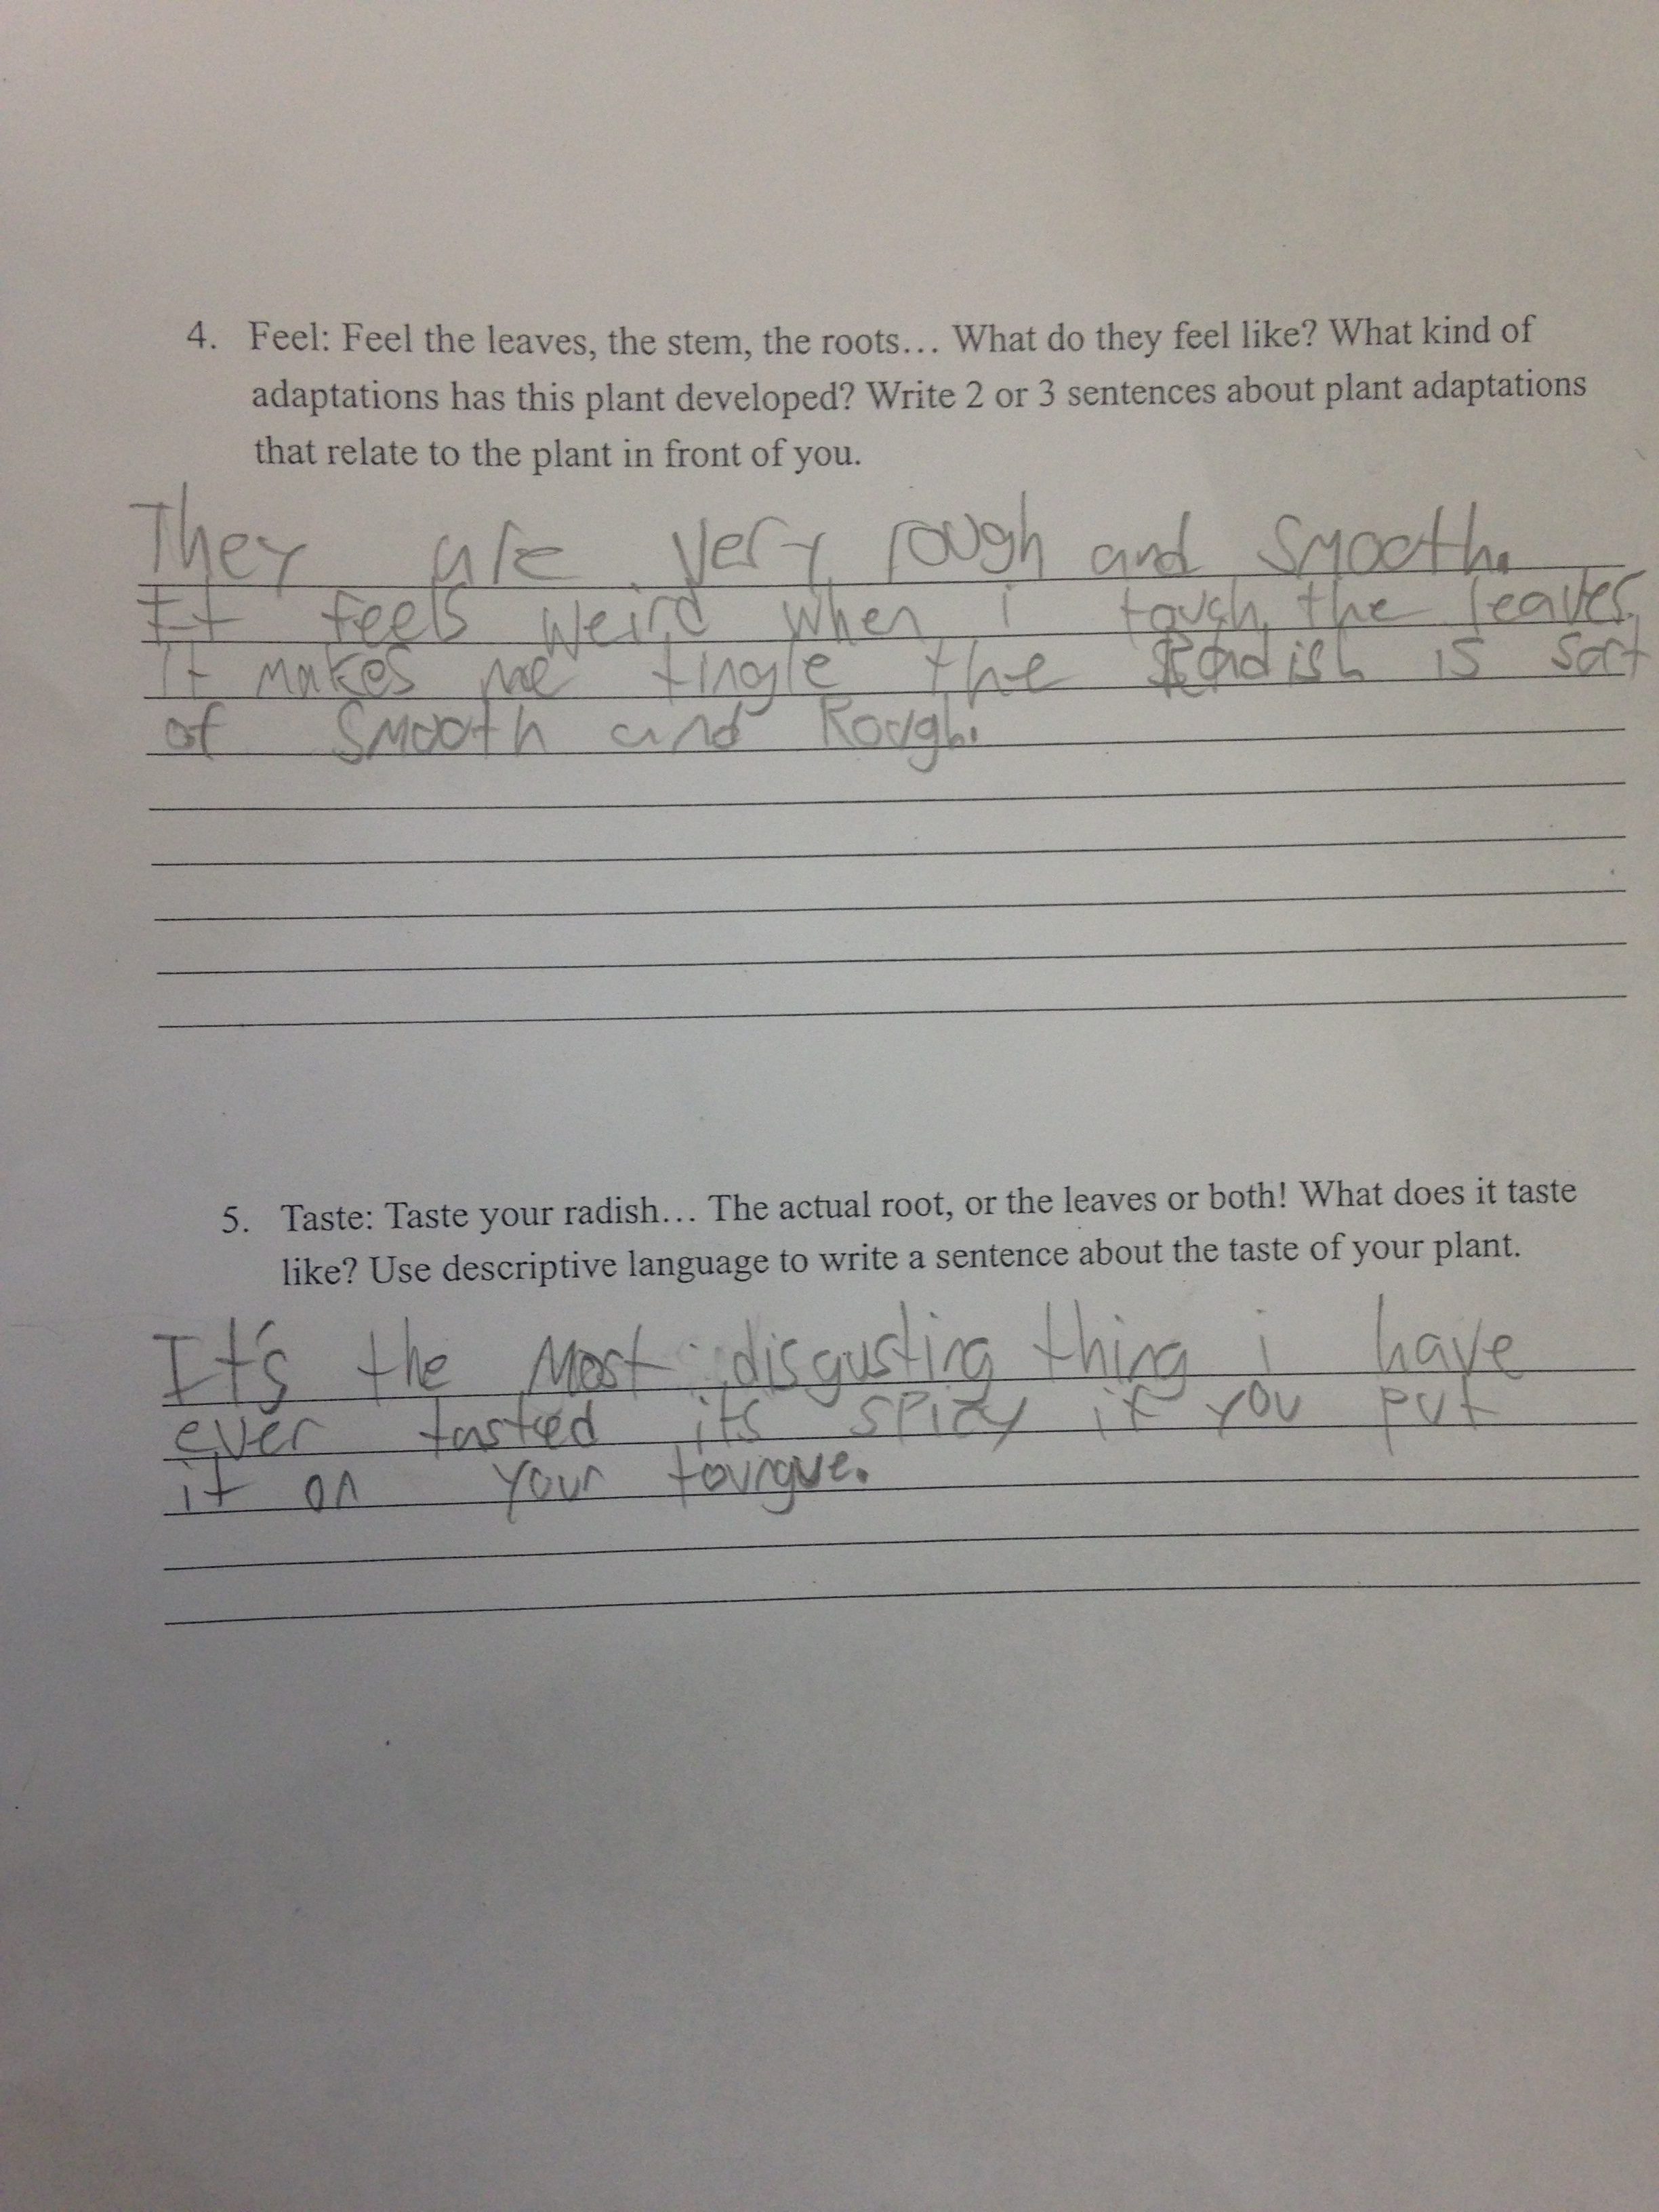 4. Feel: Feel the leaves, the stem, the roots... What do they feel like? What kind of
adaptations has this plant developed? Write 2 or 3 sentences about plant adaptations
that relate to the plant in front of you.
They are very rough and smooth.
It feels weird when i touch the leaves.
It makes me tingle the Radish is sort
of smooth and Rough.
5. Taste: Taste your radish... The actual root, or the leaves or both! What does it taste
like? Use descriptive language to write a sentence about the taste of your plant.
It's the most disgusting thing i have
ever tasted its spicy if you put
it on your toungue.